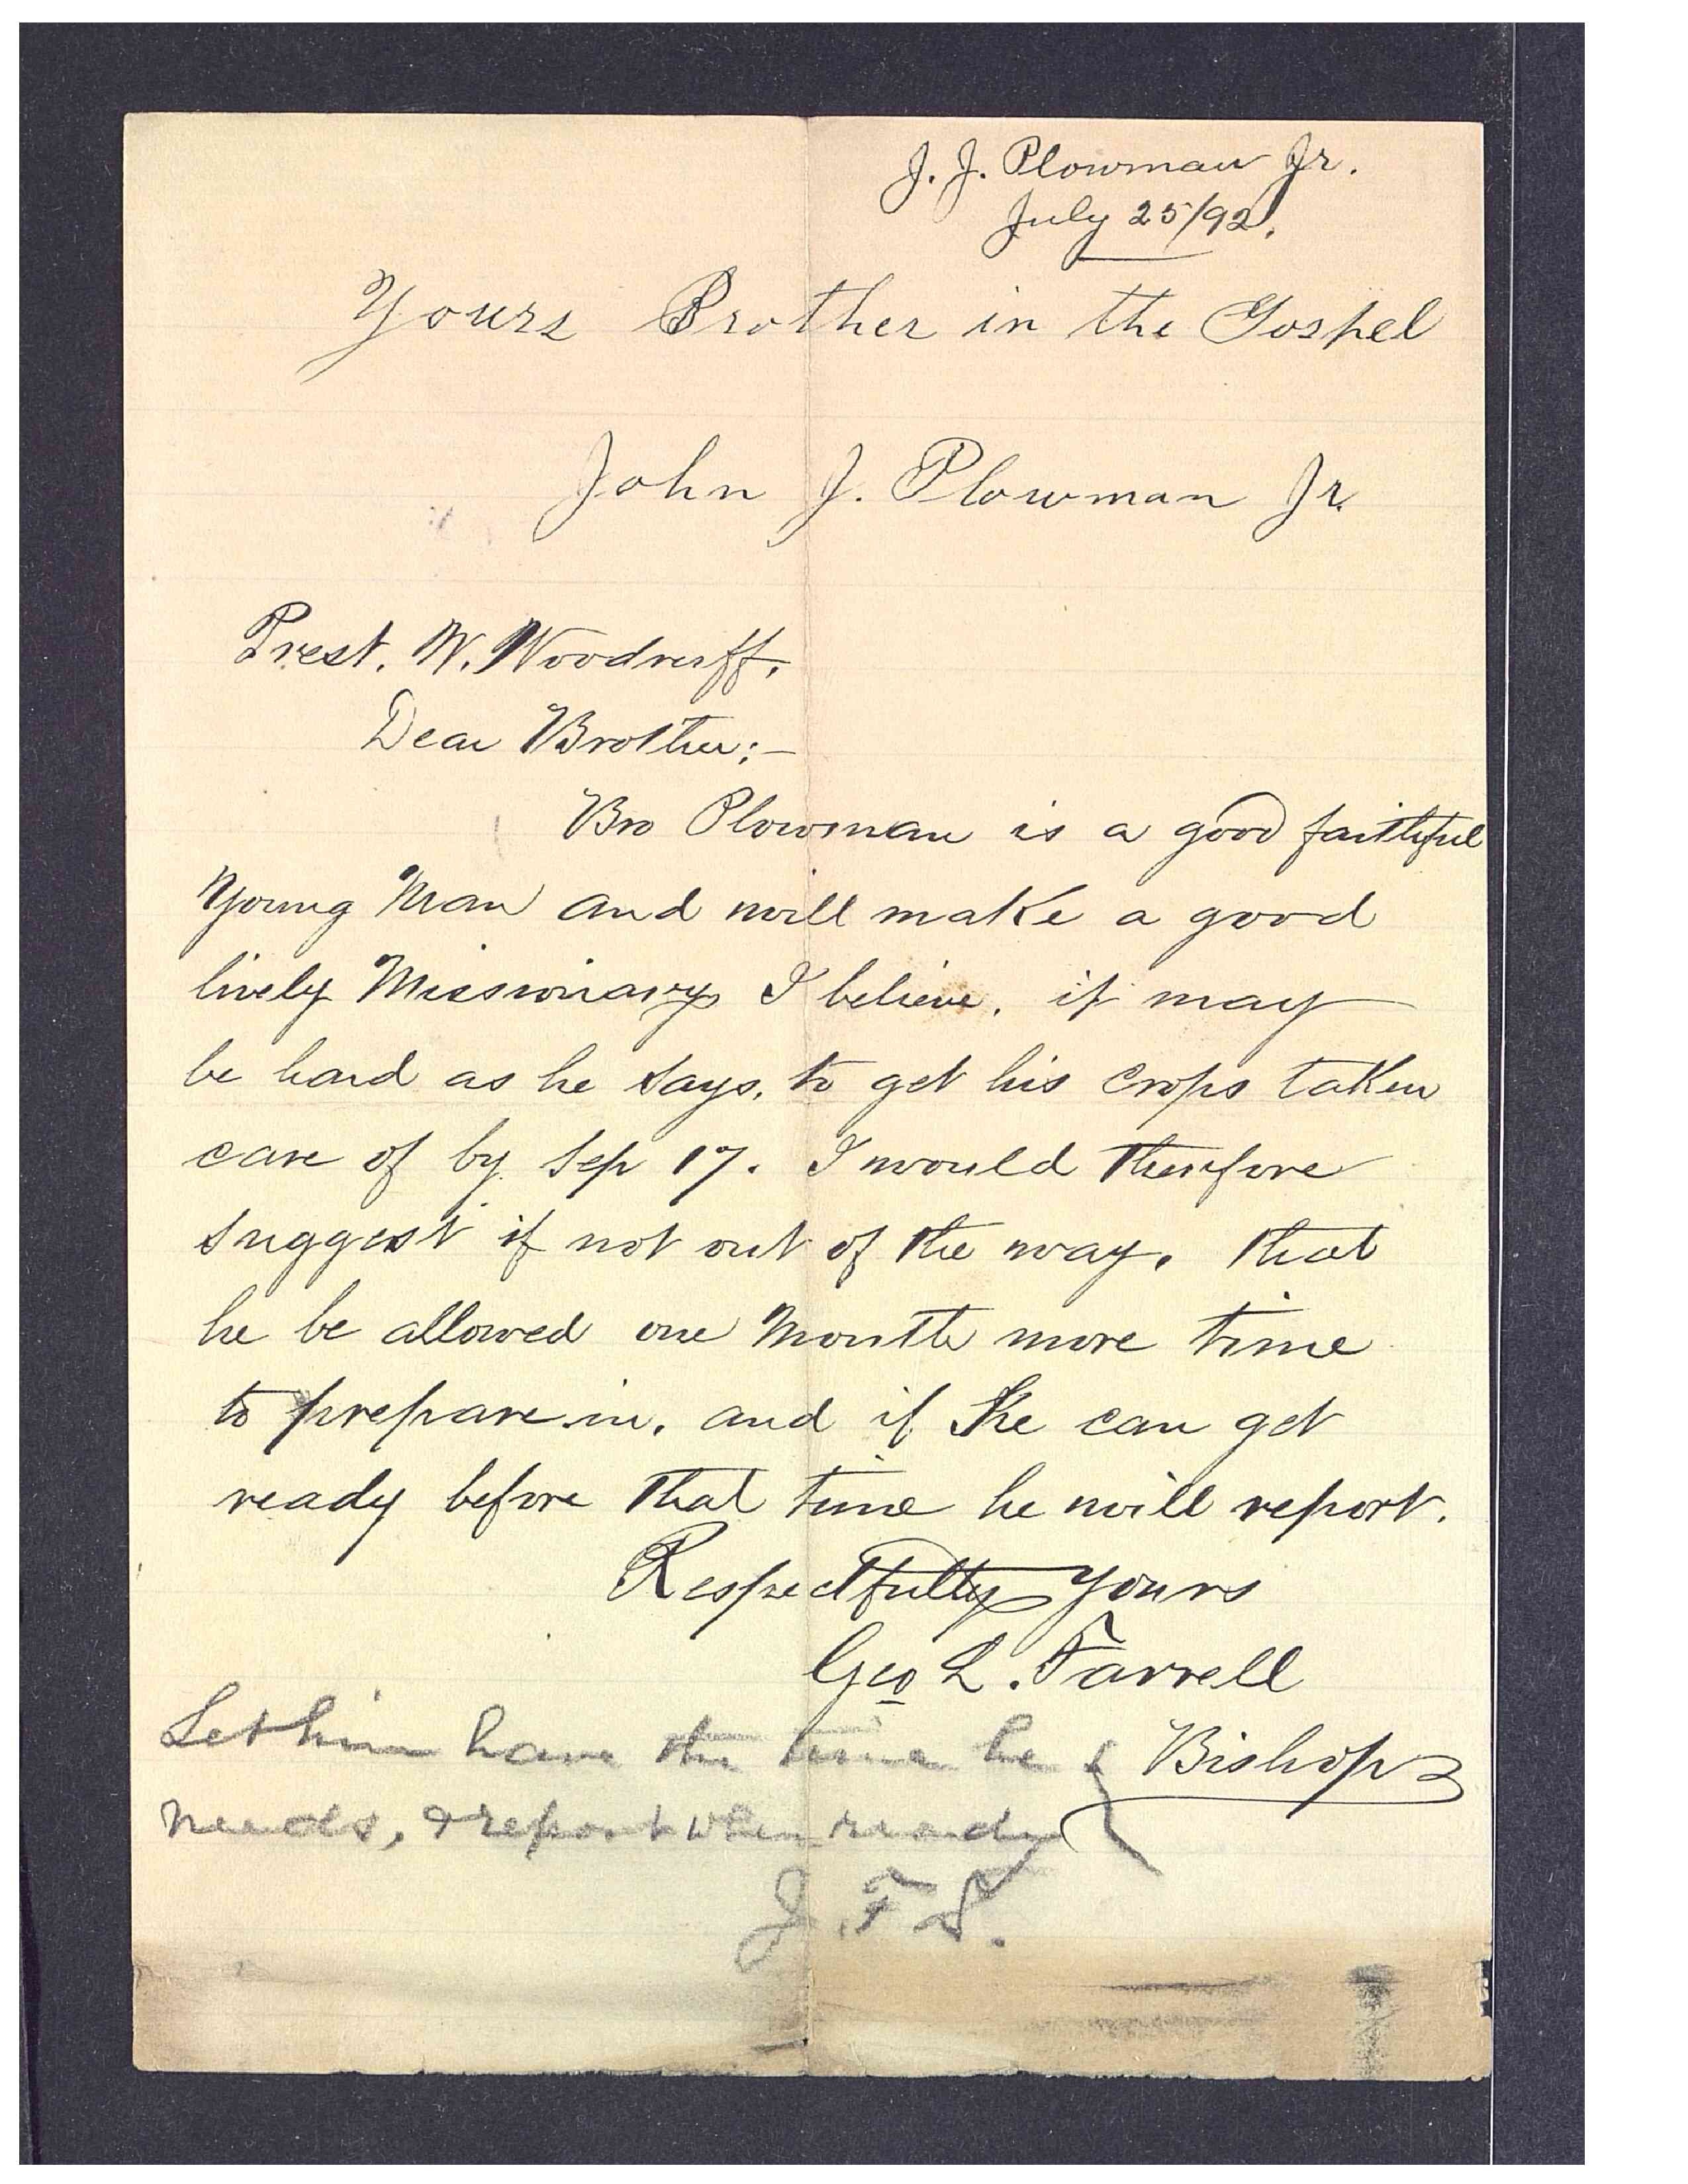 J. J. Plowman Jr.
July 25/92.
Yours Brother in the Gospel
John J. Plowman Jr.
Prest. W. Woodruff,
Dear Brother;—
Bro Plowman is a good faithful
Young Man and will make a good
lively Missionary I believe. it may
be hard as he says, to get his crops taken
care of by Sep 17. I would therefore
suggest if not out of the way, that
he be allowed one Month more time
to prepare in, and if he can get
ready before that time he will report.
Respectfully Yours
Geo L. Farrell
Bishop
Let him have the time he
needs, & report when ready
J. F. S.